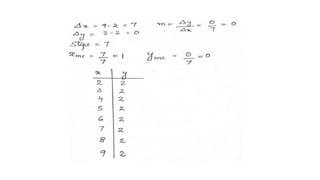 Δx = 9-2 = 7 m = Δy/Δx = 0/7 = 0
Δy = 2-2 = 0
Steps = 7
x inc = 7/7 = 1 y inc = 0/7 = 0
x y
2 2
3 2
4 2
5 2
6 2
7 2
8 2
9 2